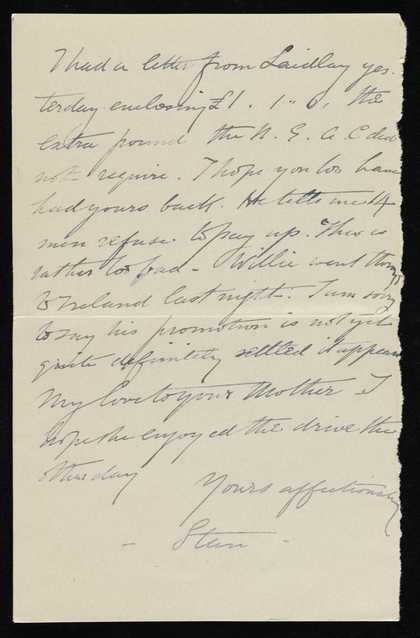 I had a letter from Laidlay yes-
terday enclosing £1. 1. 0, the
extra pound the N. G. A. C did
not require. I hope you too have
had yours back. He tells me 14
men refuse to pay up. This is
rather too bad - Willie went
to Ireland last night. I am sorry
to say his promotion is not yet
quite definitely settled it appears
My love to your Mother I
hope she enjoyed the drive the
other day
Yours affectionately